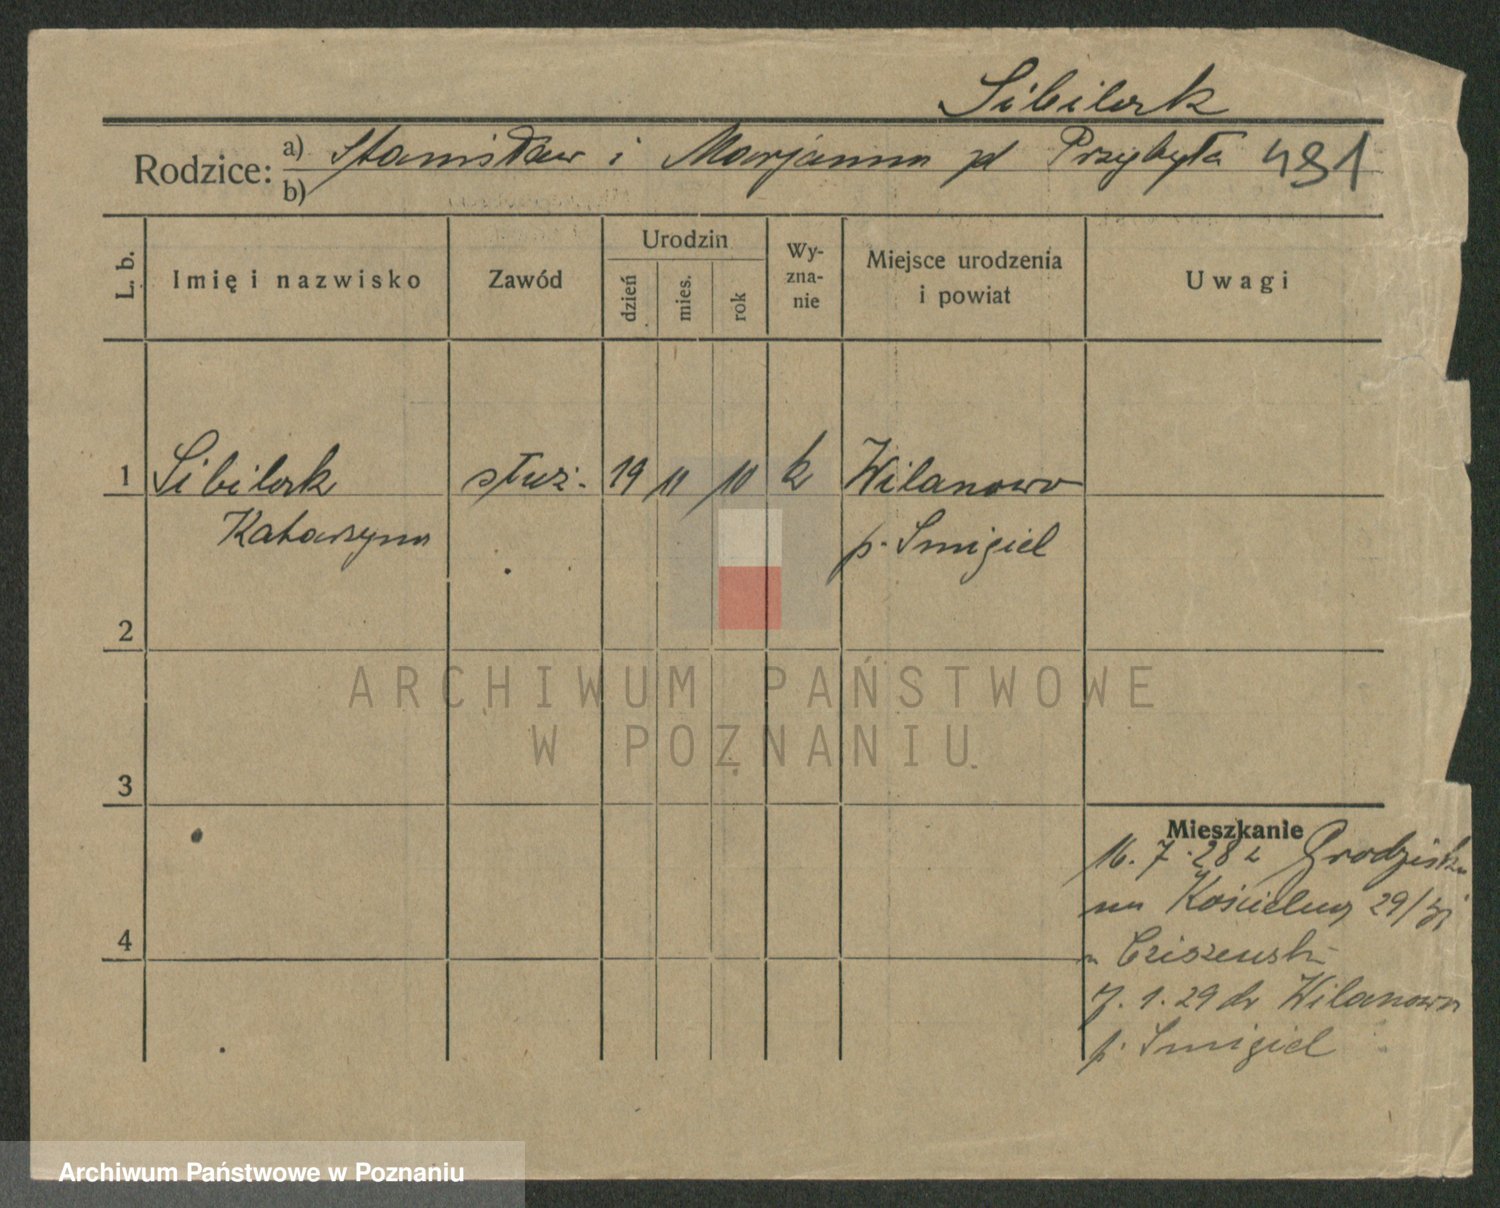 Sibilerk
Rodzice: a) Stanisław i Marjanna zd Przybyła 491
b)
L. b.
Imię i nazwisko
Zawód
Urodzin
dzień
mies.
rok
Wy-
zna-
nie
Miejsce urodzenia
i powiat
Uwagi
1 Sibilerk służ. 19 11 10 k Wilanowo
Katarzyna p. Smigiel
2
3
4
Mieszkanie
16. 7. 28 z Grodziska
na 29/
7. 1. 29 do Wilanowa
p. Smigiel
ARCHIWUM PAŃSTWOWE
W POZNANIU
Archiwum Państwowe w Poznaniu